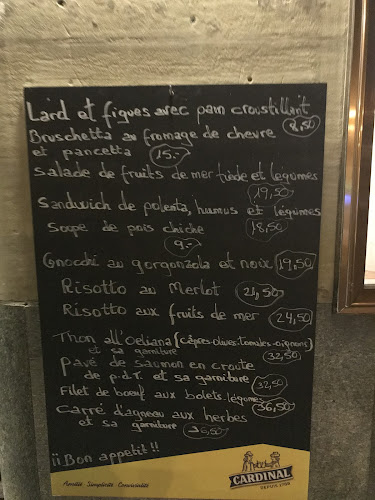 Lard et figues avec pain croustillant
8,50
Bruschetta au fromage de chevre
et pancetta 15.-
Salade de fruits de mer tiède et légumes
19,50
Sandwich de polenta, humus et légumes
18,50
Soupe de pois chiche
9.-
Gnocchi au gorgonzola et noix 19,50
Risotto au Merlot 21,50
Risotto aux fruits de mer 24,50
Thon all'Oeliana (cêpes-olives-tomates-oignons)
et sa garniture 32,50
Pavé de saumon en croute
de p.d.t et sa garniture 32,50
Filet de boeuf aux bolets-légumes
36,50
Carré d'agneau aux herbes
et sa garniture 36,50
¡¡Bon appetit!!
Amitié. Simplicité. Convivialité.
CARDINAL
DEPUIS 1788